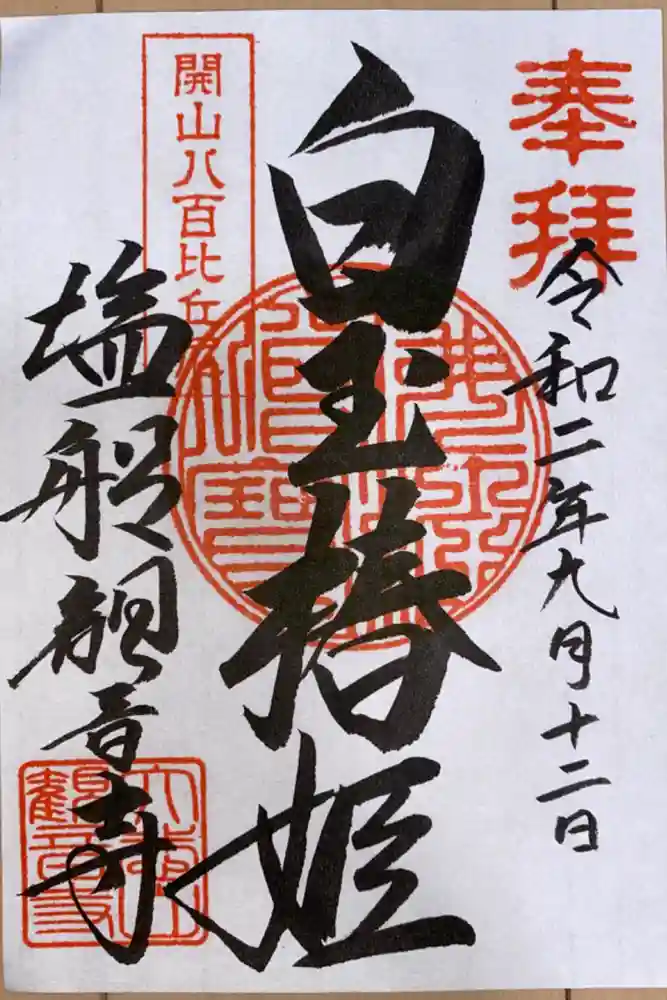 奉拝
令和二年九月十二日
白玉椿姫
開山八百比丘尼
塩船観音寺
佛法僧寳